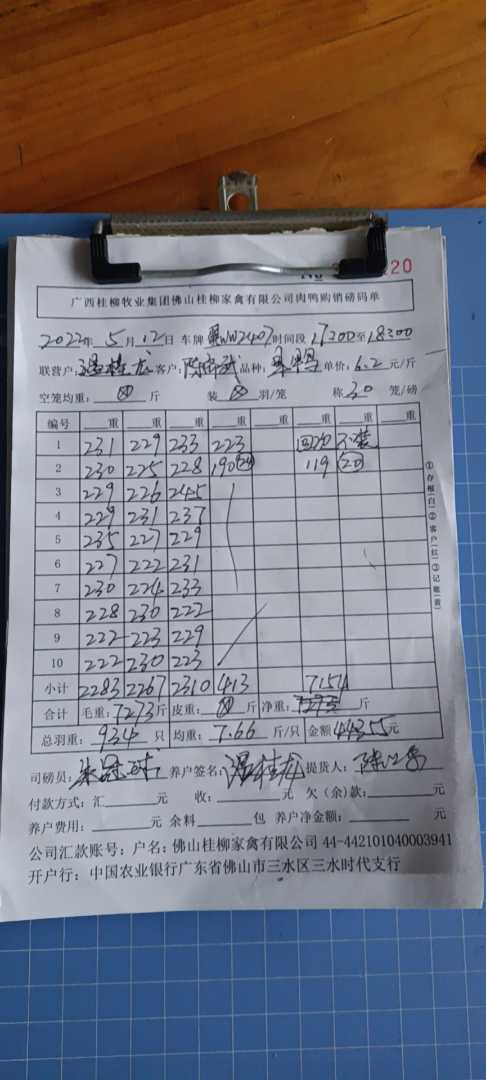 No 20
广西桂柳牧业集团佛山桂柳家禽有限公司肉鸭购销磅码单
2022年 5月 12日 车牌 粤WW2407 时间段 17:00至18:00
联营户: 温桂龙 客户: 品种: 单价: 6.2 元/斤
空笼均重: 斤 装 羽/笼 称 30 笼/磅
编号 重 重 重 重 重 重 重
1 231 229 233 223 回收 不装
2 230 225 228 190 24 119 20
3 229 226 245
4 229 231 237
5 235 227 229
6 227 222 231
7 230 224 233
8 228 230 222
9 222 223 229
10 222 230 223
小计 2283 2267 2310 413 7154
合计 毛重: 7273 斤 皮重: 斤 净重: 7273 斤
总羽重: 934 只 均重: 7.66 斤/只 金额 44355 元
司磅员: 养户签名: 温桂龙 提货人:
付款方式: 汇 元 收: 元 欠(余)款: 元
养户费用: 元 余料 包 养户净金额: 元
公司汇款账号: 户名: 佛山桂柳家禽有限公司 44-442101040003941
开户行: 中国农业银行广东省佛山市三水区三水时代支行
①存根(白)②客户(红)③记账(黄)